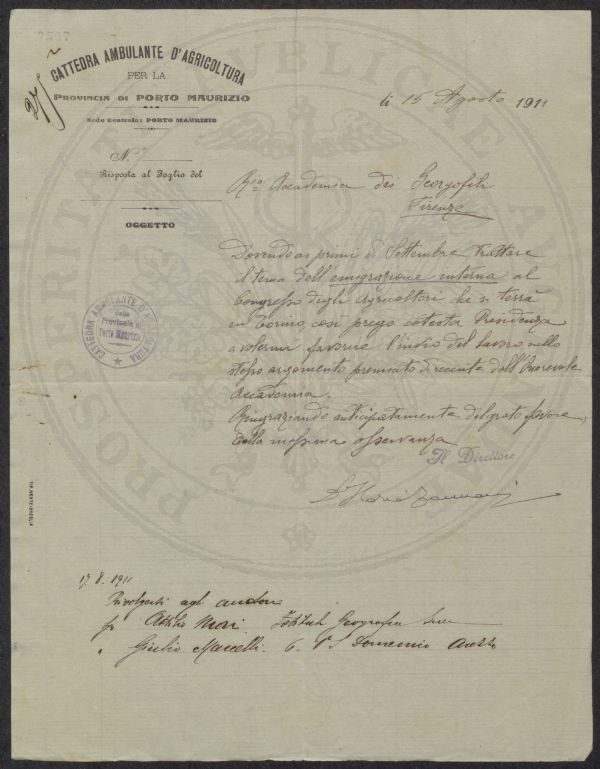 7537
CATTEDRA AMBULANTE D'AGRICOLTURA
PER LA
PROVINCIA DI PORTO MAURIZIO
Sede Centrale: PORTO MAURIZIO
li 15 Agosto 1911
N.
Risposta al Foglio del
OGGETTO
Accademia dei Georgofili
Firenze
Dovendo ai primi di Settembre trattare
il tema dell'emigrazione interna al
Congresso degli Agricoltori che si terrà
in Torino, così prego cotesta Presidenza
a volermi favorire l'invio del lavoro nello
stesso argomento premiato di recente dall'Onorevole
Accademia.
Ringraziando anticipatamente del grato favore,
della massima osservanza
Il Direttore
CATTEDRA AMBULANTE D'AGRICOLTURA
della
Provincia di
Porto Maurizio
17. 8. 1911
Rivolgersi agli autori
Attilio Mori. Istituto Geografico
Giulio Marcelli. 6. S. Domenico Arezzo